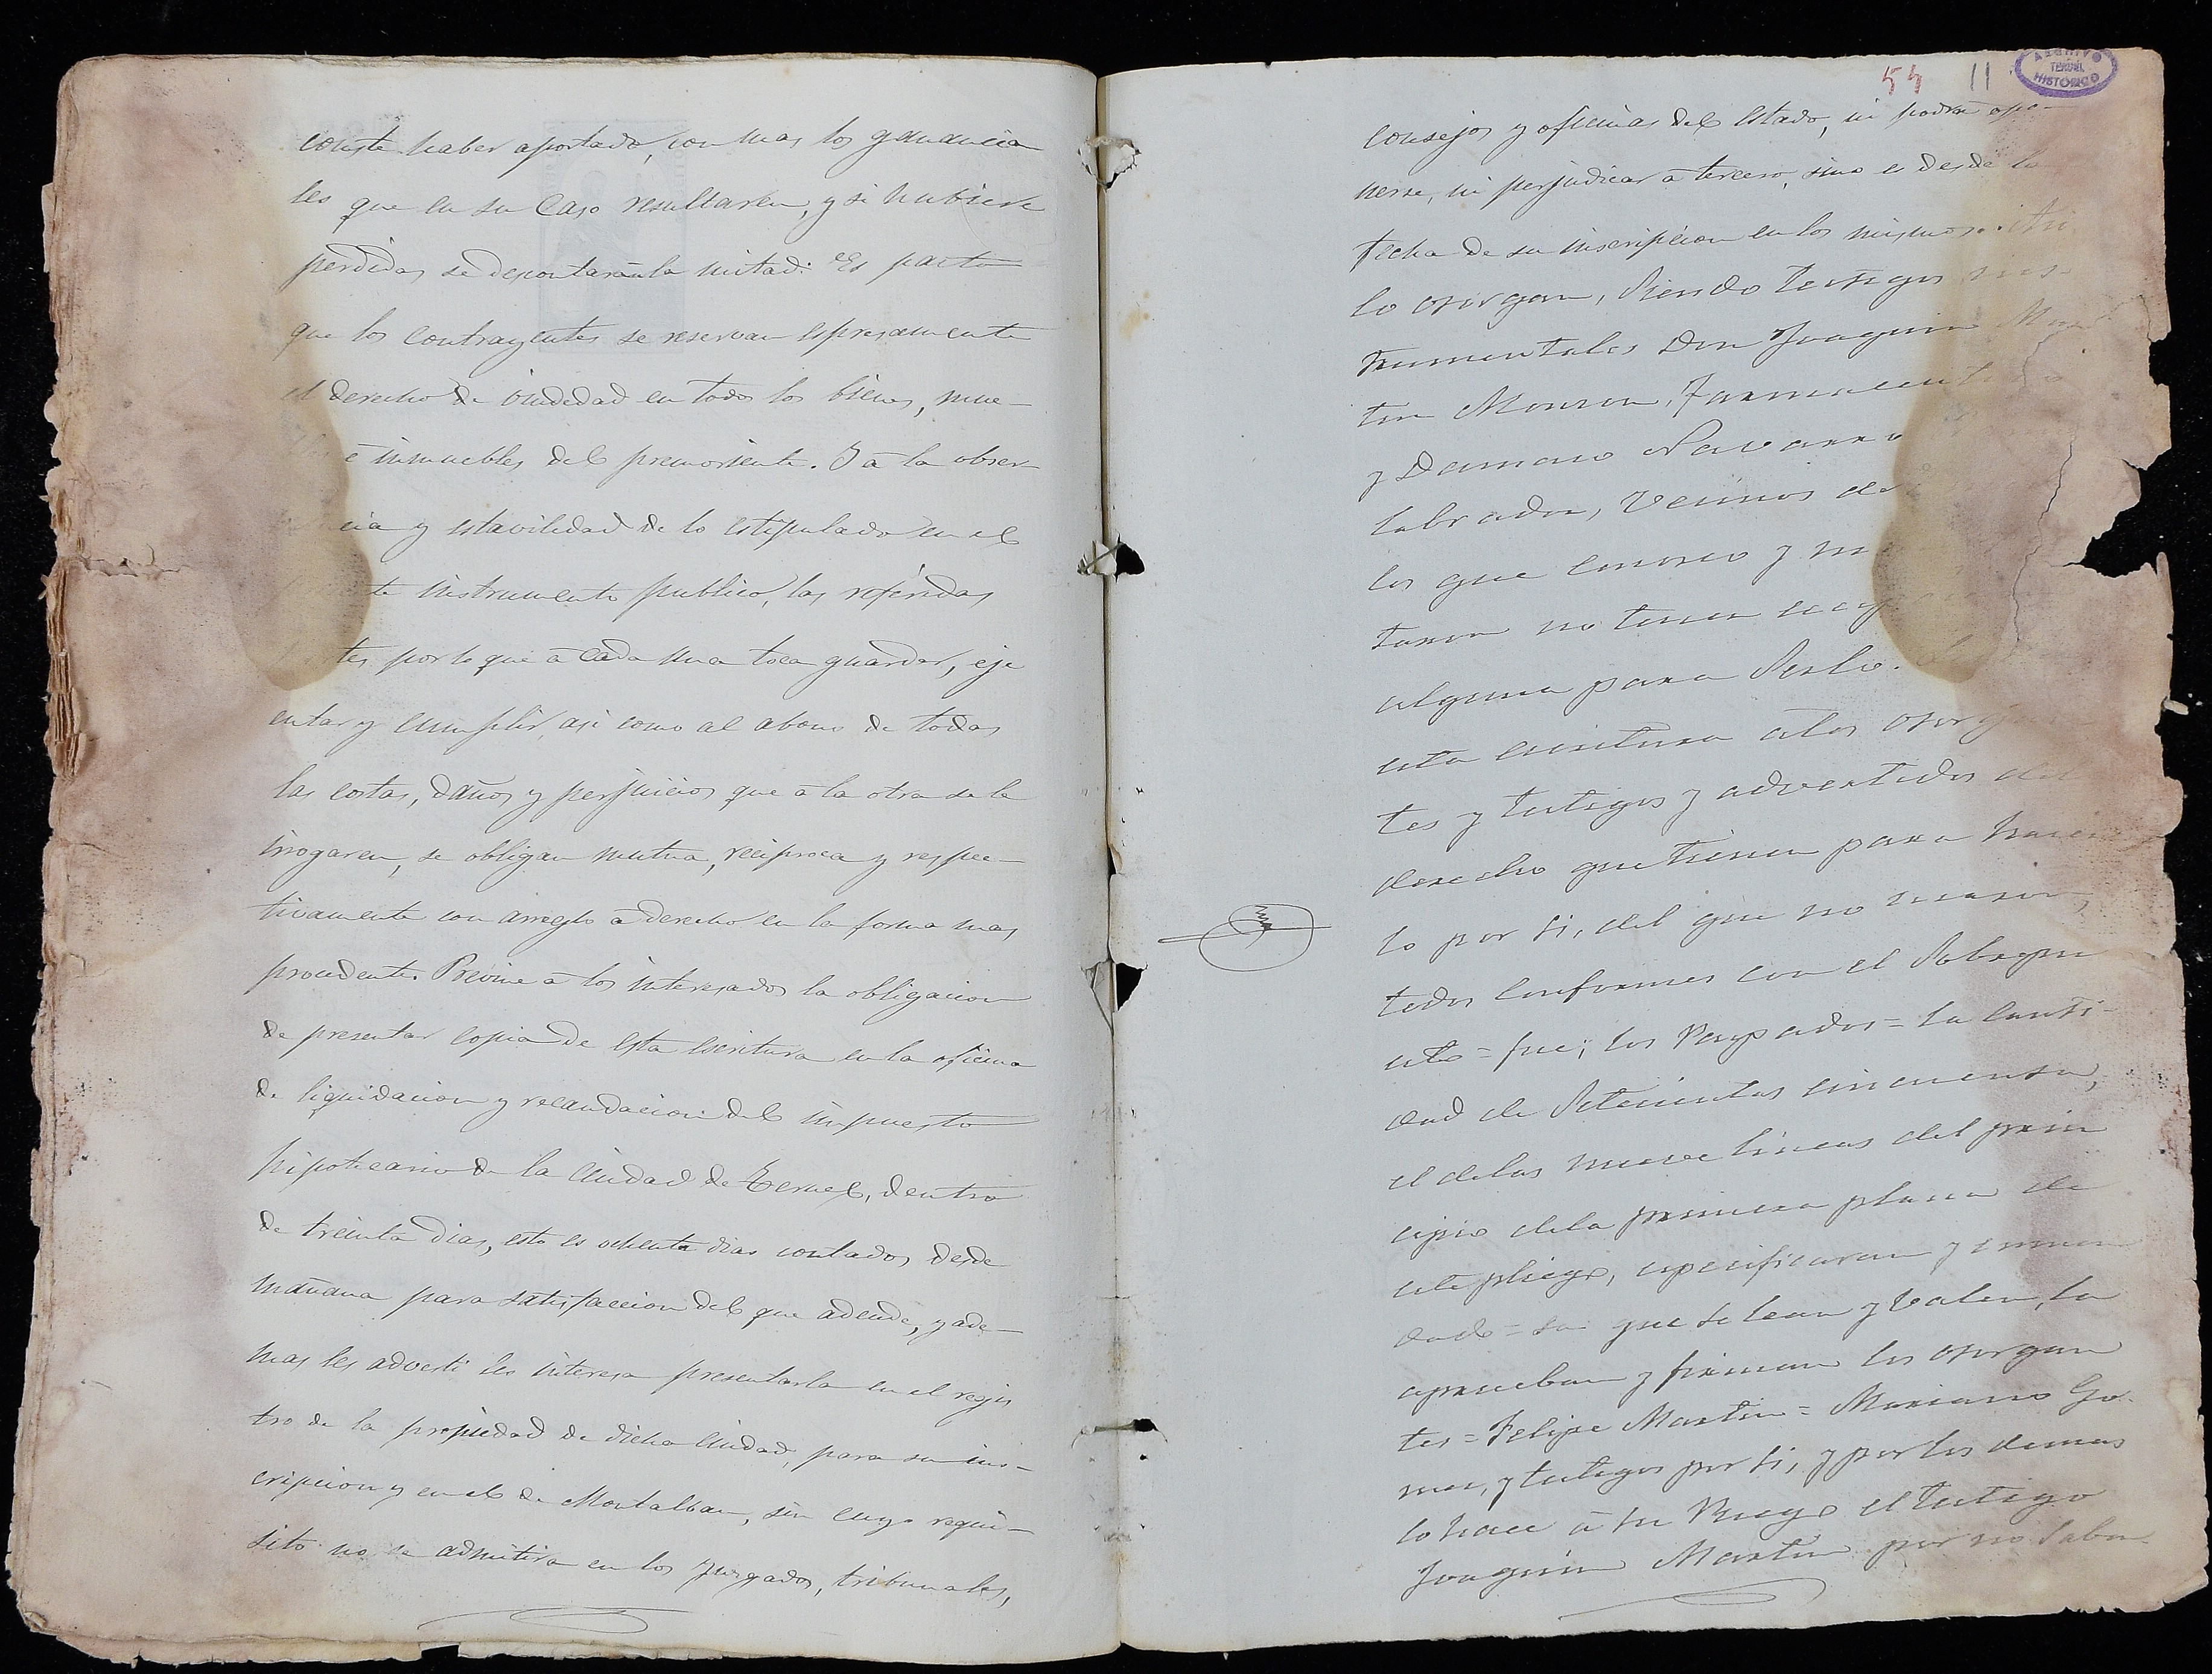 conste haber aportado, con mas los ganancia
les que en su caso resultaren, y si hubiere
perdidas se descontarán la mitad. Es pacto
que los contrayentes se reservan espresamente
el derecho de viudedad en todos los bienes, mue-
é inmuebles del premoriente. Y á la obser
cia y estavilidad de lo estipulado en el
te instrumento publico, las referidas
tes por lo que á cada una toca guardar, eje
cutar y cumplir, asi como al abono de todas
las costas, daños y perjuicios que á la otra se le
irrogaren, se obligan mutua, reciproca y respec-
tivamente con arreglo á derecho en la forma mas
procedente. Previne á los interesados la obligacion
de presentar copia de esta escritura en la oficina
de liquidacion y recaudacion del impuesto
hipotecario de la Ciudad de Teruel, dentro
de treinta dias, esto es ochenta dias contados desde
mañana para satisfaccion del que adeude, y ade-
mas les adverti les interesa presentarla en el regis
tro de la propiedad de dicha Ciudad, para su ins-
cripcion y en el de Montalban, sin cuyo requi-
sito no se admitira en los Juzgados, tribunales,
54 11
ARCHIVO
TERUEL
HISTÓRICO
consejos y oficinas del Estado, ni podrá opo-
nerse, ni perjudicar á tercero, sino es desde la
fecha de su inscripcion en los mismos. Asi
lo otorgan, siendo testigos ins-
trumentales Don Joaquin Mar
tin Monzon, Farmaceutico
y Damaso Navarro
labrador, vecinos de
los que conozco y m
taron no tener excep
alguna para serlo.
esta escritura á los otorgan
tes y testigos y advertidos del
derecho que tienen para hacer
lo por si, del que no usaron,
todos conformes con el Sobrepu
esto = fue; los Raspados = la canti-
dad de Setecientos cincuenta,
el de las nueve lineas del prin
cipio de la primera plana de
este pliego, especificaran y enmen
dado = su que se lean y valen, la
aprueban y firman los otorgan
tes = Felipe Martin = Mariano Go-
mez, y testigos por si, y por los demas
lo hace á su Ruego el testigo
Joaquin Martin por no saber